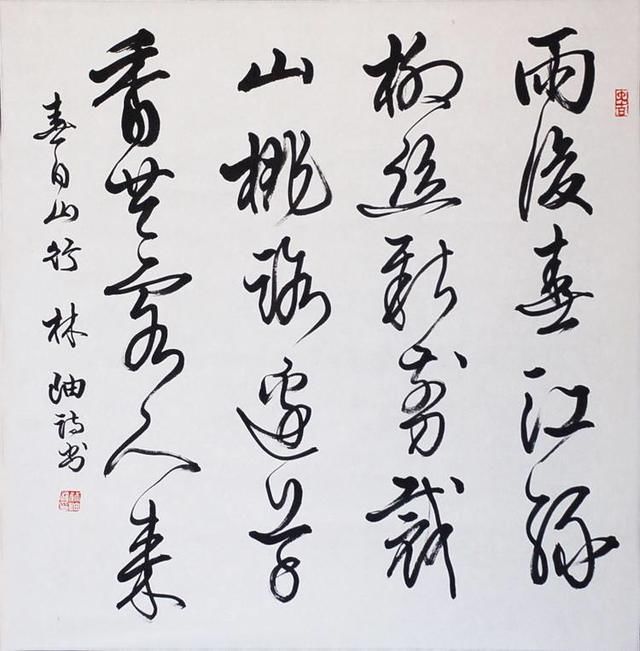 雨後春江綠
柳絲新剪裁
山桃路邊等
香共客人來
春日山行 林岫詩書